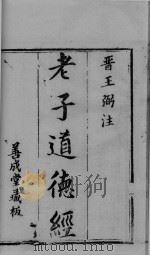 晉王弼注
老子道德經
善成堂藏板